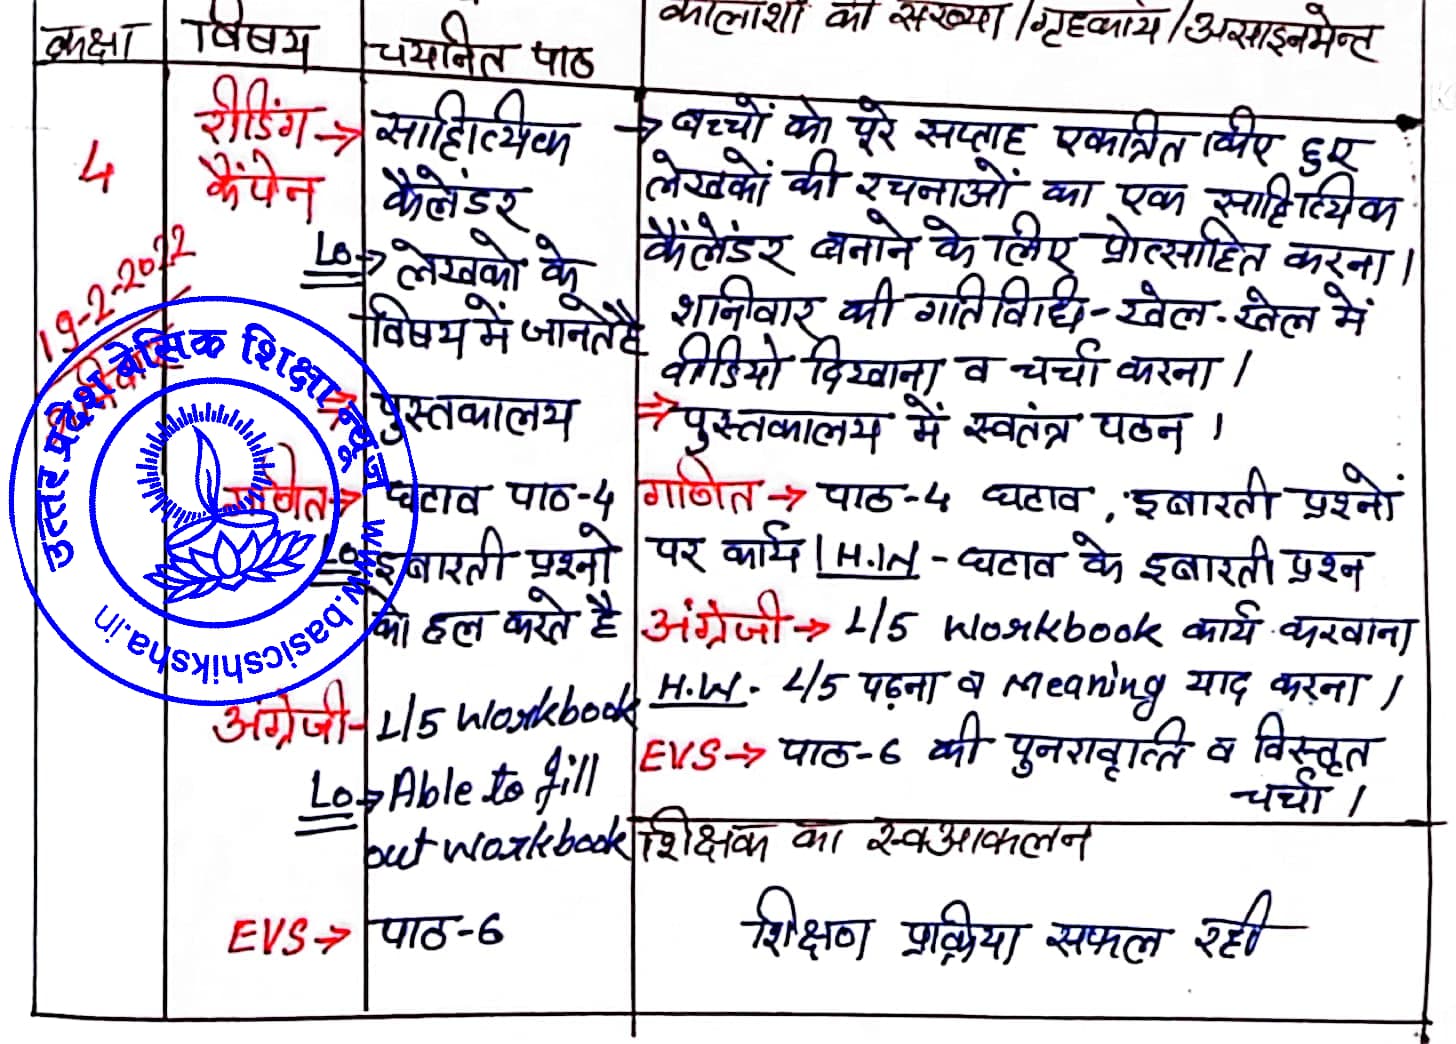 कक्षा विषय चयनित पाठ कालांशों की संख्या/गृहकार्य/असाइनमेन्ट
4
19-2-2022
रीडिंग → साहित्यिक
कैंपेन कैलेंडर
LO → लेखकों के
विषय में जानते है
पुस्तकालय
गणित → घटाव पाठ-4
LO इबारती प्रश्नों
को हल करते है
अंग्रेजी- L/5 Workbook
LO → Able to fill
out workbook
EVS → पाठ-6
→ बच्चों को पूरे सप्ताह एकत्रित किए हुए
लेखकों की रचनाओं का एक साहित्यिक
कैलेंडर बनाने के लिए प्रोत्साहित करना।
शनिवार की गतिविधि - खेल-खेल में
वीडियो दिखाना व चर्चा करना।
⇒ पुस्तकालय में स्वतंत्र पठन।
गणित → पाठ-4 घटाव, इबारती प्रश्नों
पर कार्य। H.W - घटाव के इबारती प्रश्न
अंग्रेजी → L/5 Workbook कार्य करवाना
H.W. L/5 पढ़ना व Meaning याद करना।
EVS → पाठ-6 की पुनरावृत्ति व विस्तृत
चर्चा।
शिक्षक का स्वआकलन
शिक्षण प्रक्रिया सफल रही
उत्तर प्रदेश बेसिक शिक्षा न्यूज
www.basicshiksha.in